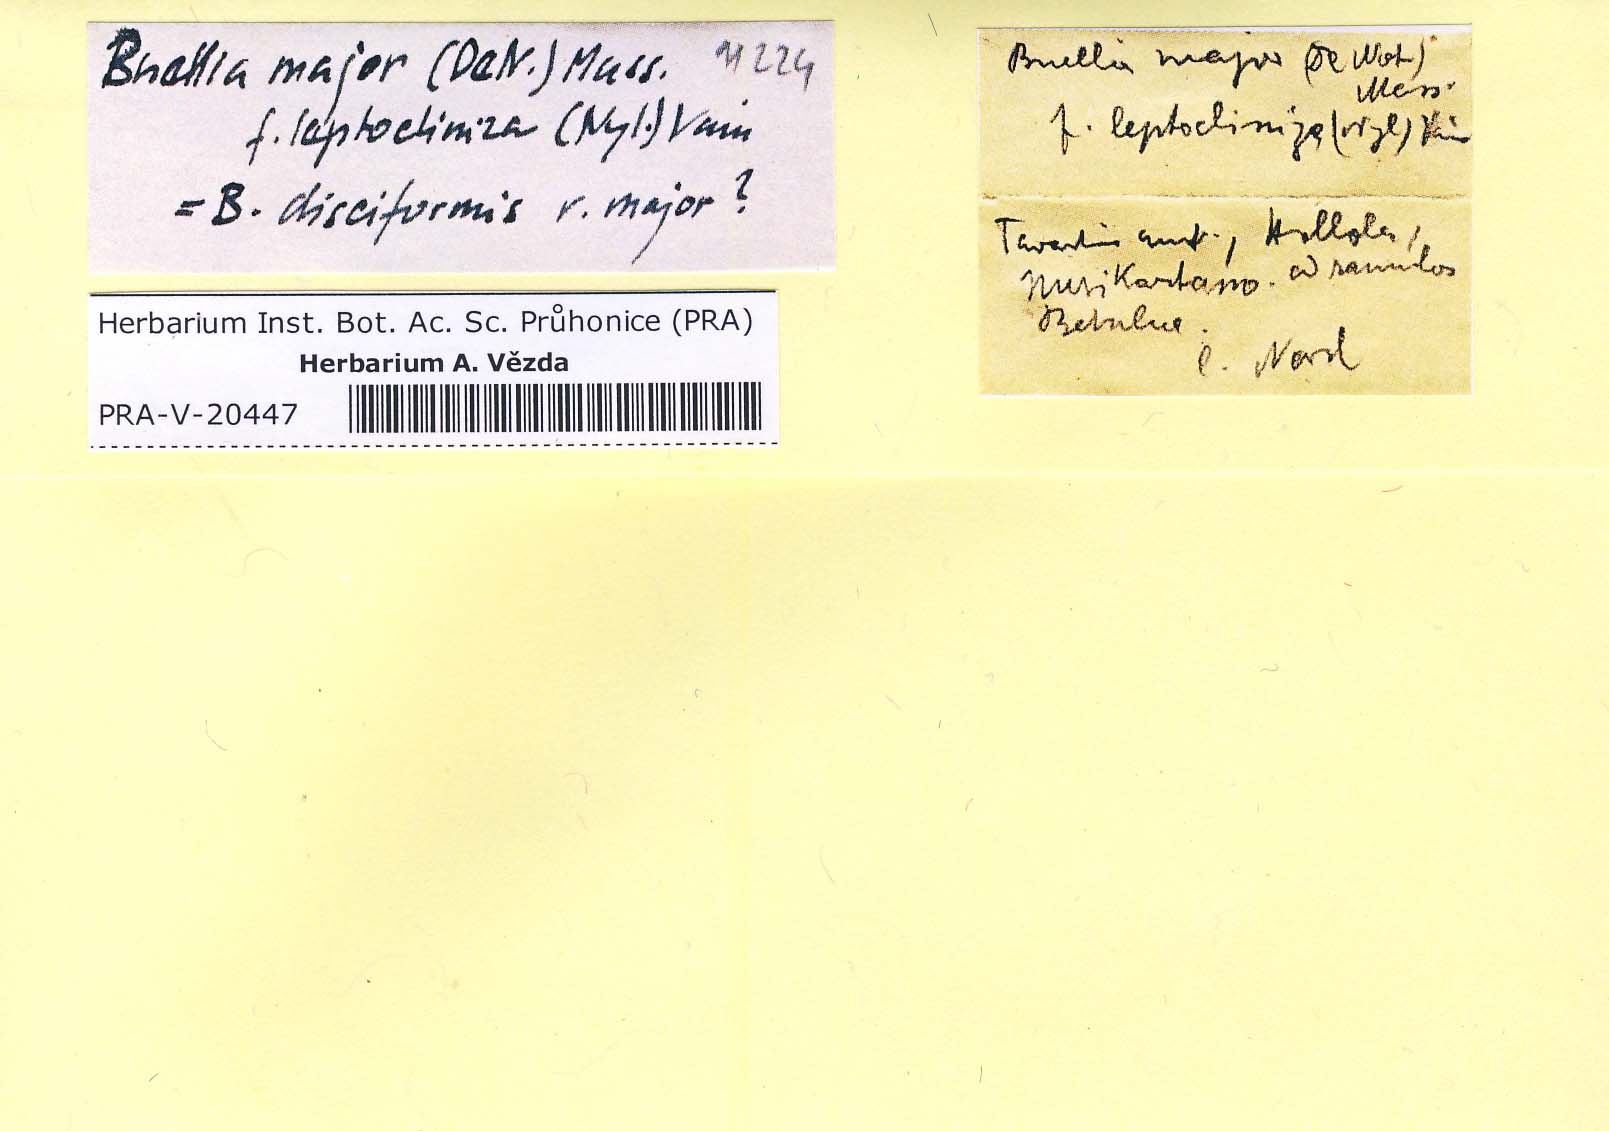 Buellia major (DeN.) Mass. 11224
f. leptocliniza (Nyl.) Vain
= B. disciformis v. major ?
Herbarium Inst. Bot. Ac. Sc. Průhonice (PRA)
Herbarium A. Vězda
PRA-V-20447
Buellia major (De Not.)
Mass.
f. leptocliniza (Nyl) Vain
Hollola,
ad ramulos
Betulae.
l. Nord